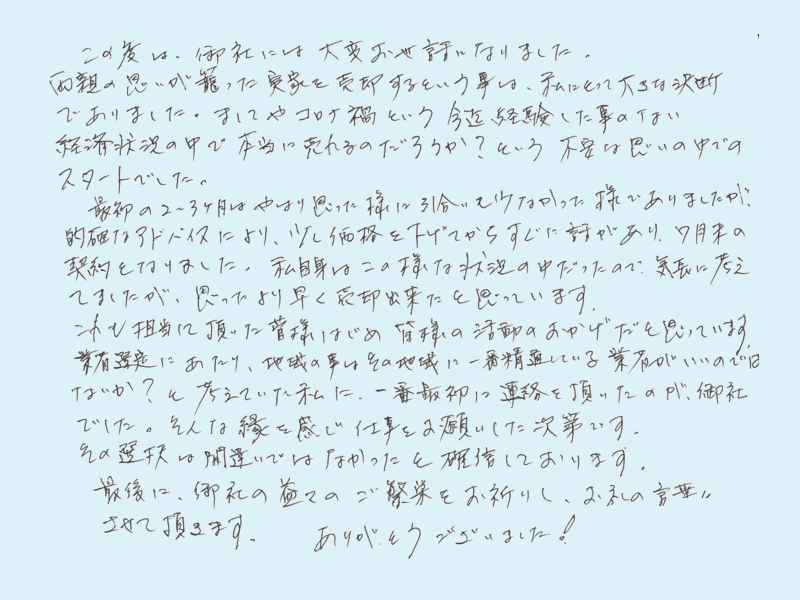 この度は、御社には大変お世話になりました。
両親の思いが籠った実家を売却するという事は、私にとって大きな決断
でありました。ましてやコロナ禍という今迄経験した事のない
経済状況の中で本当に売れるのだろうか？という不安な思いの中での
スタートでした。
最初の2～3ヶ月はやはり思った様に引合いも少なかった様でありましたが、
的確なアドバイスにより、少し価格を下げてからすぐに話があり、7月末の
契約となりました。私自身はこの様な状況の中だったので気長に考え
てましたが、思ったより早く売却出来たと思っています。
これも担当して頂いた菅様はじめ皆様の活動のおかげだと思っています。
業者選定にあたり、地域の事はその地域に一番精通している業者がいいのでは
ないか？と考えていた私に、一番最初に連絡を頂いたのが、御社
でした。そんな縁を感じ仕事をお願いした次第です。
その選択は間違いではなかったと確信しております。
最後に、御社の益々のご繁栄をお祈りし、お礼の言葉に
させて頂きます。 ありがとうございました！